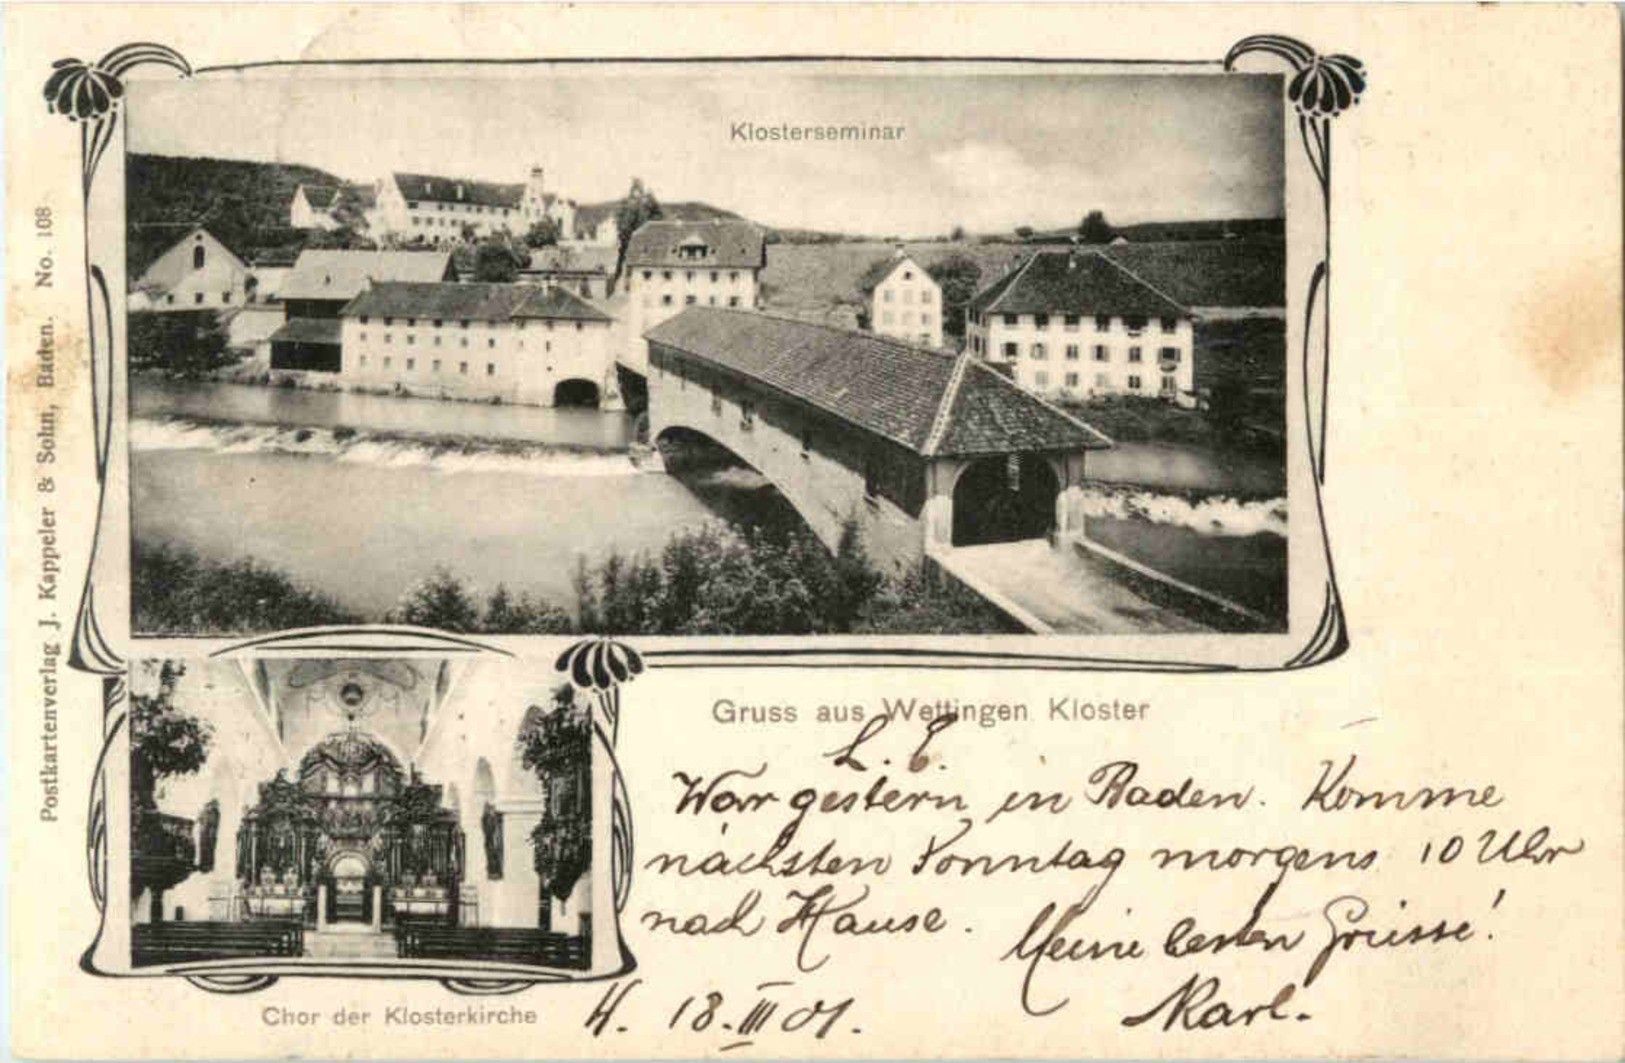 Klosterseminar
Postkartenverlag J. Kappeler & Sohn, Baden. No. 108
Gruss aus Wettingen Kloster
L. E.
War gestern in Baden. Komme
nächsten Sonntag morgens 10 Uhr
nach Hause.
Meine besten Grüsse!
Karl.
Chor der Klosterkirche
W. 18. III 01.